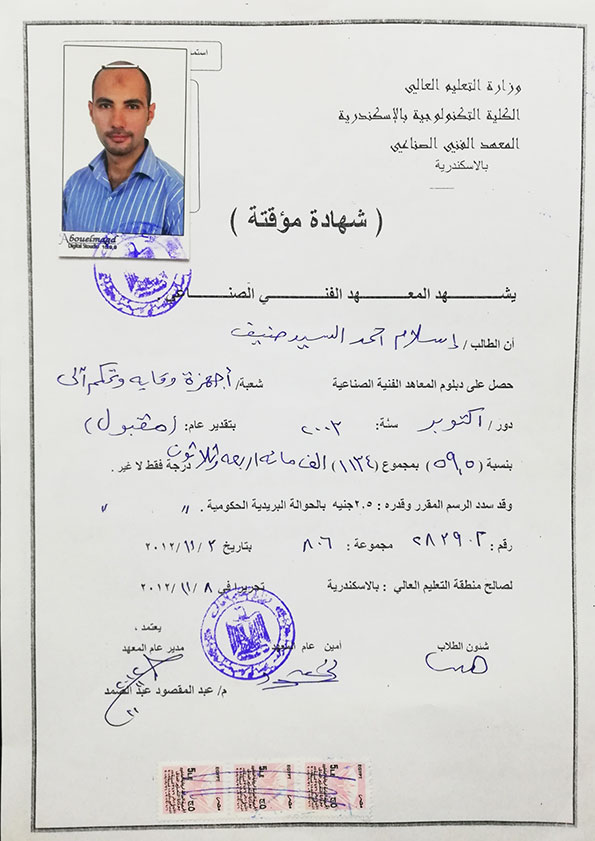 استمـ
وزارة التعليم العالي
الكلية التكنولوجية بالإسكندرية
المعهد الفني الصناعي
بالاسكندرية
Abouelmagd
Digital Studio
( شهادة مؤقتة )
يشهد المعهد الفني الصناعي
أن الطالب / إسلام احمد السيد حنيف
حصل على دبلوم المعاهد الفنية الصناعية شعبة/ أجهزة وقايه وتحكم آلى
دور / اكتوبر سنة: ٢٠٠٣ بتقدير عام: (مقبول)
بنسبة (٥٩,٥) بمجموع (١١٣٤) الف مائه اربعه وثلاثون درجة فقط لا غير .
وقد سدد الرسم المقرر وقدره : ٢.٥جنيه بالحوالة البريدية الحكومية . " "
رقم : ٢٨٣٩٠٢ مجموعة : ٨٠٦ بتاريخ ٢ /١١/ ٢٠١٢
لصالح منطقة التعليم العالي : بالاسكندرية تحريرا في ٨ /١١/ ٢٠١٢
يعتمد ،
شئون الطلاب أمين عام المعهد مدير عام المعهد
م/ عبد المقصود عبد الصمد
EGYPT مصر
EGYPT مصر
EGYPT مصر